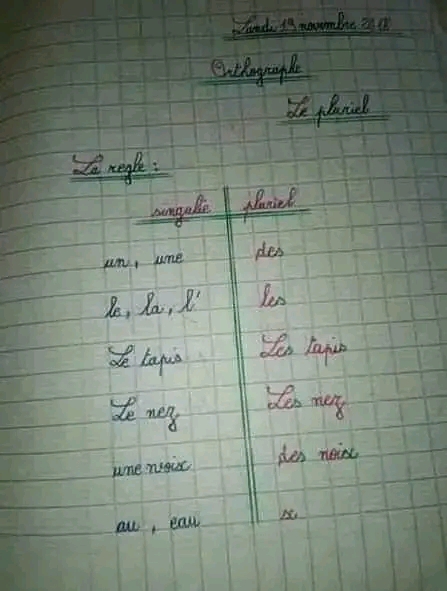 Lundi 19 novembre
Orthographe
Le pluriel
La regle :
singulie pluriel
un, une des
le, la, l' les
Le tapis Les tapis
Le nez Les nez
une noix des noix
au, eau x